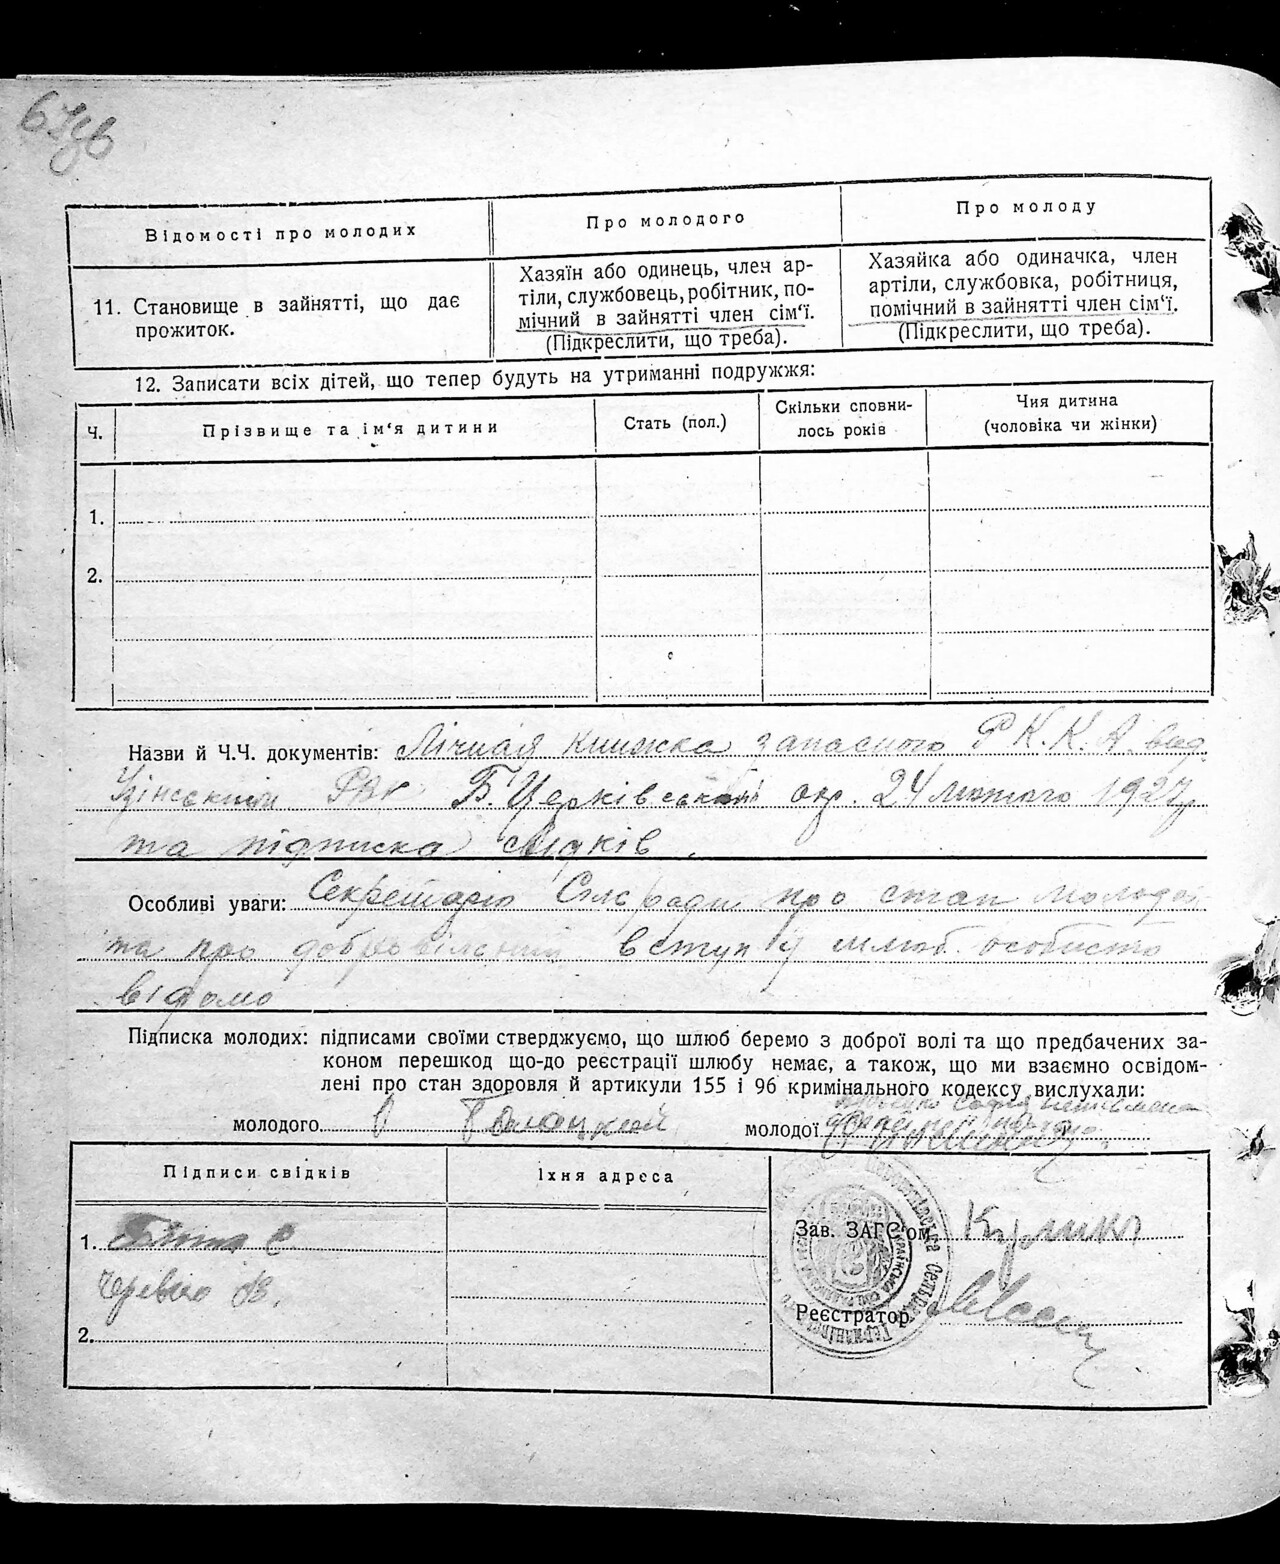 Відомості про молодих
Про молодого
Про молоду
11. Становище в зайнятті, що дає
прожиток.
Хазяїн або одинець, член ар-
тілі, службовець, робітник, по-
мічний в зайнятті член сім'ї.
(Підкреслити, що треба).
Хазяйка або одиначка, член
артілі, службовка, робітниця,
помічний в зайнятті член сім'ї.
(Підкреслити, що треба).
12. Записати всіх дітей, що тепер будуть на утриманні подружжя:
Ч.
Прізвище та ім'я дитини
Стать (пол.)
Скільки сповни-
лось років
Чия дитина
(чоловіка чи жінки)
1.
2.
Назви й Ч.Ч. документів: Лічная книжка запасного Р.К.К.А. вид.
Узінським РВК Б. Церківської окр. 24 лютого 1927 р
та підписка свідків.
Особливі уваги: Секретарю Сільради про стан молодої
та про добровільний вступ у шлюб особисто
відомо
Підписка молодих: підписами своїми стверджуємо, що шлюб беремо з доброї волі та що предбачених за-
коном перешкод що-до реєстрації шлюбу немає, а також, що ми взаємно освідом-
лені про стан здоровля й артикули 155 і 96 кримінального кодексу вислухали:
молодого
молодої София неписьмена
Підписи свідків
Їхня адреса
1.
2.
Зав. ЗАГС'ом
Реєстратор